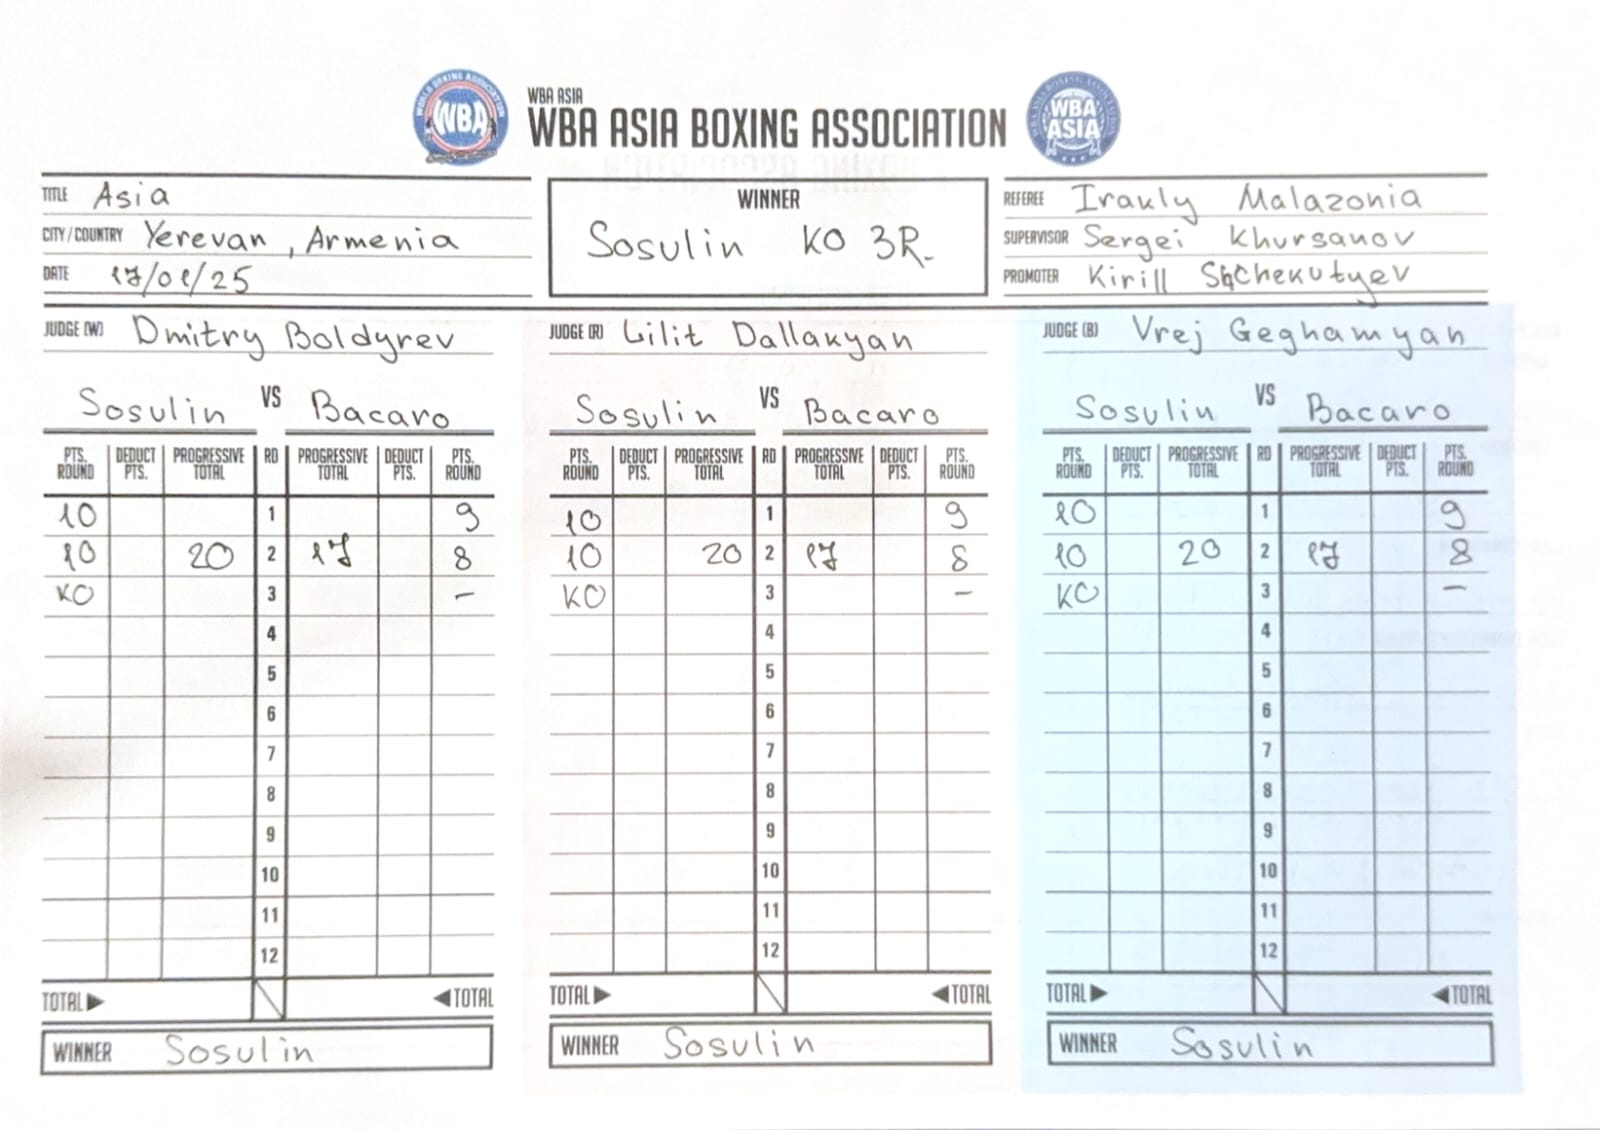 WBA ASIA
WBA ASIA BOXING ASSOCIATION
WBA
WBA ASIA
TITLE Asia
CITY/COUNTRY Yerevan, Armenia
DATE 17/01/25
WINNER
Sosulin KO 3R.
REFEREE Irakly Malazonia
SUPERVISOR Sergei Khursanov
PROMOTER Kirill Shchekutyev
JUDGE (W) Dmitry Boldyrev
Sosulin VS Bacaro
PTS. ROUND DEDUCT PTS. PROGRESSIVE TOTAL RD PROGRESSIVE TOTAL DEDUCT PTS. PTS. ROUND
10 1 9
10 20 2 17 8
KO 3 –
4
5
6
7
8
9
10
11
12
TOTAL TOTAL
WINNER Sosulin
JUDGE (R) Lilit Dallakyan
Sosulin VS Bacaro
PTS. ROUND DEDUCT PTS. PROGRESSIVE TOTAL RD PROGRESSIVE TOTAL DEDUCT PTS. PTS. ROUND
10 1 9
10 20 2 17 8
KO 3 –
4
5
6
7
8
9
10
11
12
TOTAL TOTAL
WINNER Sosulin
JUDGE (B) Vrej Geghamyan
Sosulin VS Bacaro
PTS. ROUND DEDUCT PTS. PROGRESSIVE TOTAL RD PROGRESSIVE TOTAL DEDUCT PTS. PTS. ROUND
10 1 9
10 20 2 17 8
KO 3 –
4
5
6
7
8
9
10
11
12
TOTAL TOTAL
WINNER Sosulin